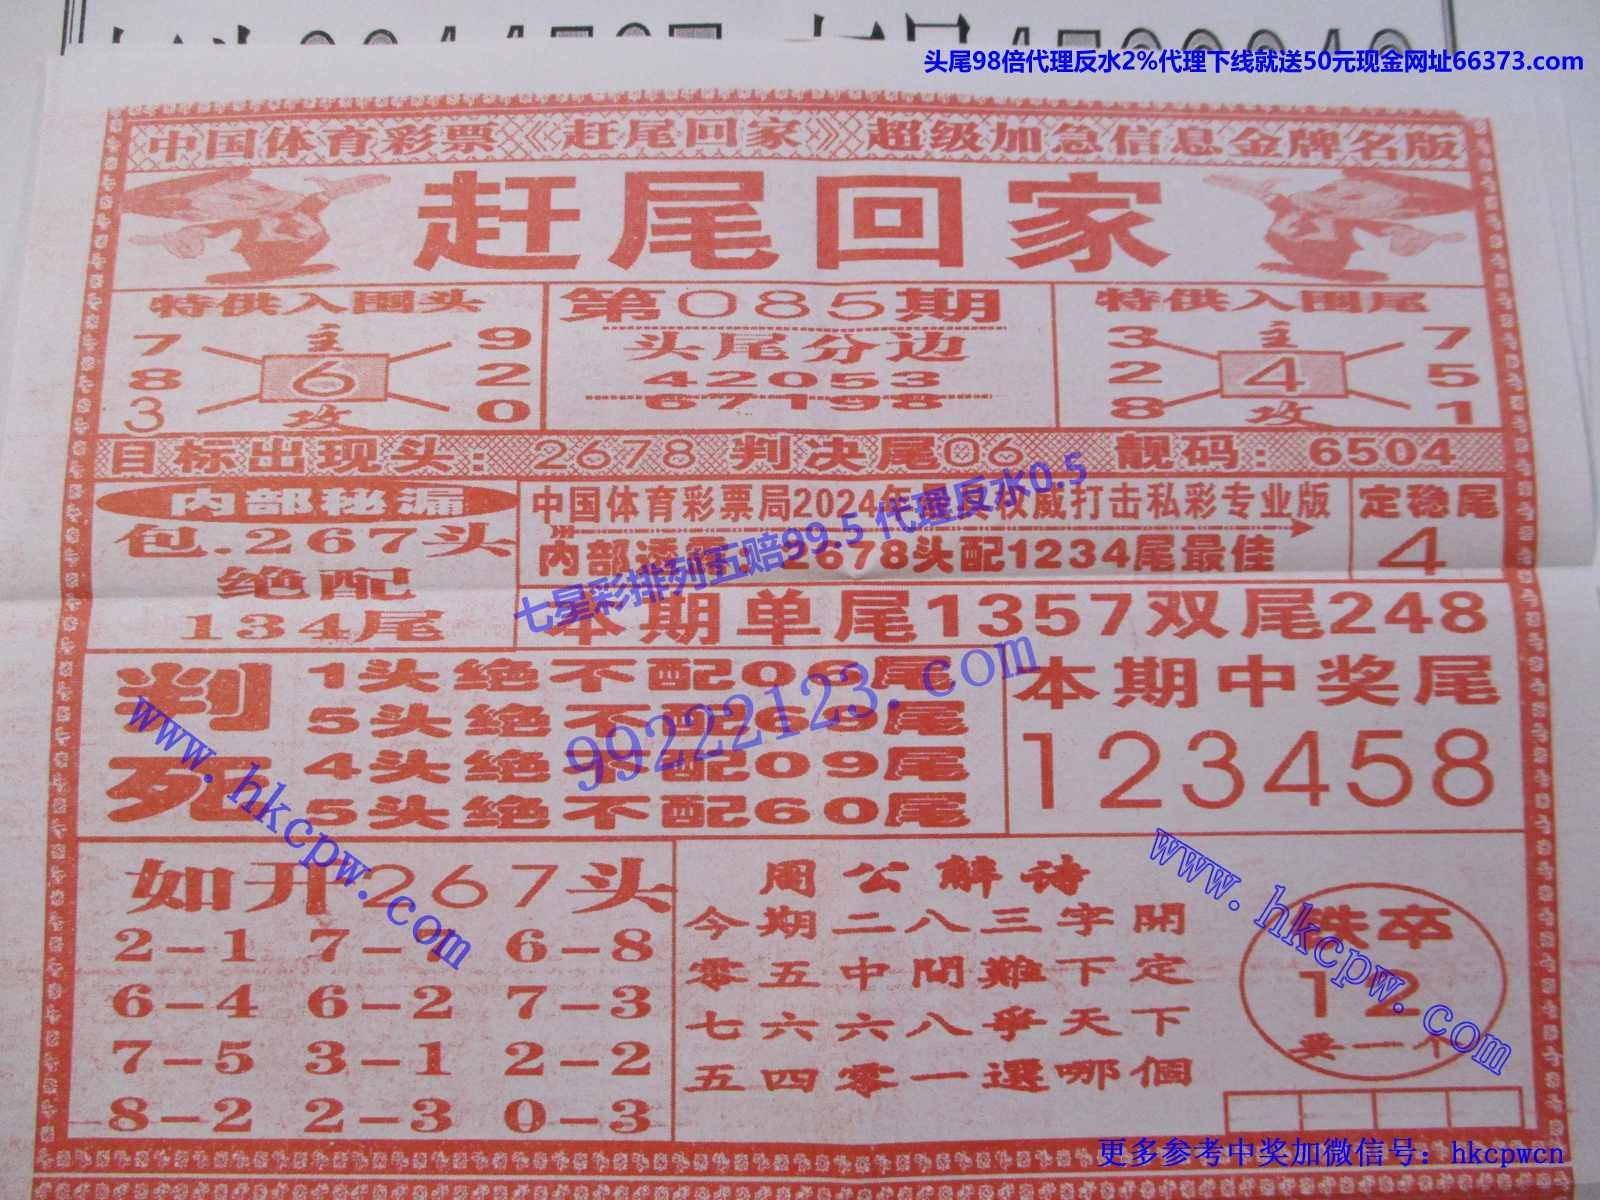 头尾98倍代理反水2%代理下线就送50元现金网址66373.com
中国体育彩票《赶尾回家》超级加急信息金牌名版
赶尾回家
特供入围头
7 主 9
8 6 2
3 攻 0
第085期
头尾分边
42053
67198
特供入围尾
3 主 7
2 4 5
8 攻 1
目标出现头：2678 判决尾06 靓码：6504
内部秘漏
包.267头
绝配
134尾
中国体育彩票局2024年 权威打击私彩专业版
内部透 2678头配1234尾最佳
定稳尾
4
七星彩排列五赔99.5 代理反水0.5
本期单尾1357双尾248
判死
1头绝不配 尾
5头绝不配 尾
4头绝不配09尾
5头绝不配60尾
99222123.com
本期中奖尾
123458
www.hkcpw.com
如开267头
2-1 7- 6-8
6-4 6-2 7-3
7-5 3-1 2-2
8-2 2-3 0-3
周公解诗
今期二八三字開
零五中間難下定
七六六八爭天下
五四零一選哪個
卒
12
要一个
www.hkcpw.com
更多参考中奖加微信号：hkcpwcn